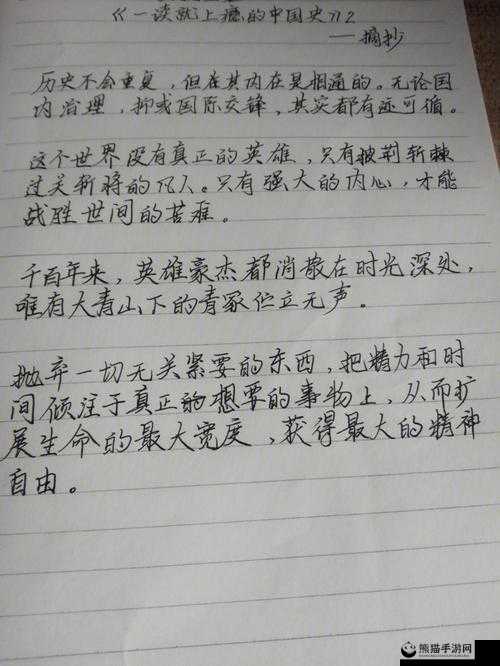 《一读就上瘾的中国史》2
——摘抄
历史不会重复，但在其内在是相通的。无论国
内治理，抑或国际交锋，其实都有迹可循。
这个世界没有真正的英雄，只有披荆斩棘
过关斩将的凡人。只有强大的内心，才能
战胜世间的苦难。
千百年来，英雄豪杰都消散在时光深处，
唯有大青山下的青冢伫立无声。
抛弃一切无关紧要的东西，把精力和时
间倾注于真正的想要的事物上，从而扩
展生命的最大宽度，获得最大的精神
自由。
熊猫手游网